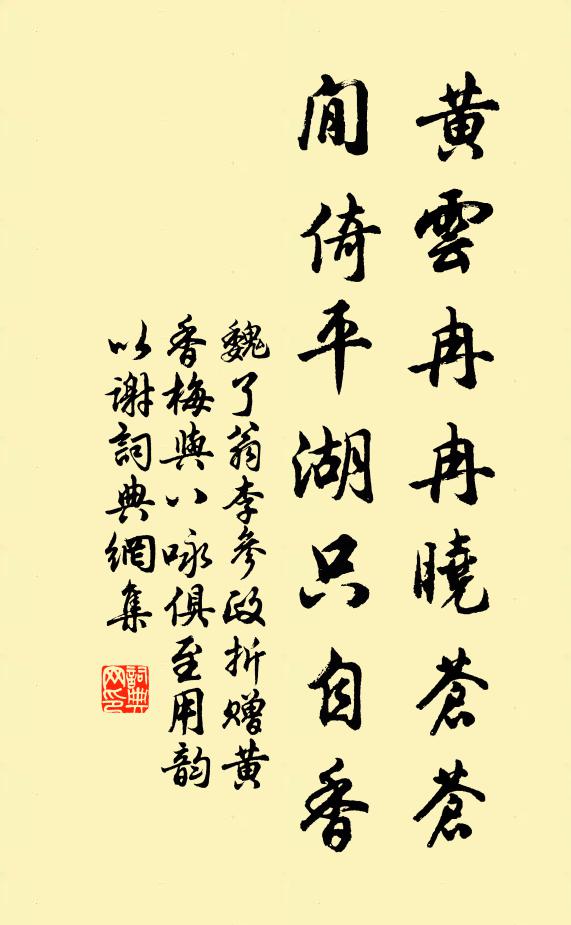 黄雲冉冉曉蒼蒼
閒倚平湖只自香
魏了翁李參政折贈黄
香梅與八咏俱至用韵
以謝詞典網集
詞典
网印